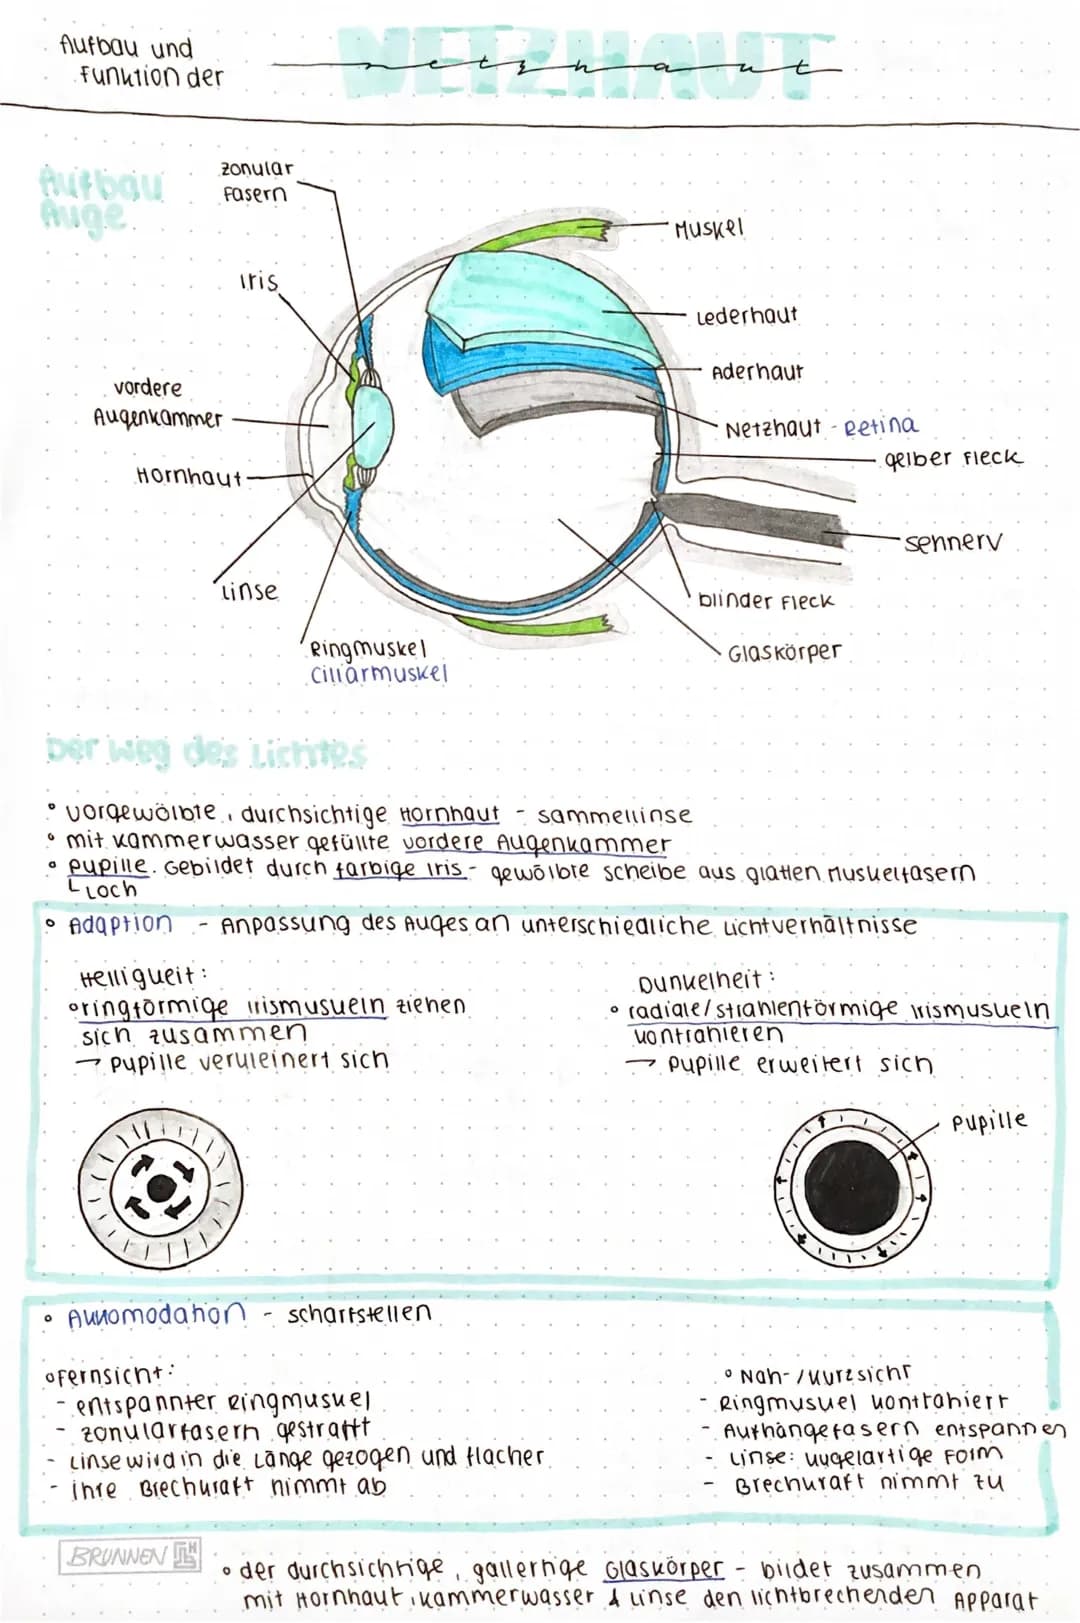 Aufbau und
Funktion der
NETZHAUT
netzhaut
Aufbau
Auge
Zonular
Fasern
Iris
vordere
Augenkammer
Hornhaut
Linse
Ringmuskel
Ciliarmuskel
Muskel
Lederhaut
Aderhaut
Netzhaut - Retina
gelber Fleck
Sehnerv
blinder Fleck
Glaskörper
Der Weg des Lichtes
° vorgewölbte, durchsichtige Hornhaut - Sammellinse
° mit Kammerwasser gefüllte vordere Augenkammer
° Pupille. Gebildet durch farbige Iris - gewölbte Scheibe aus glatten Muskelfasern
Loch
° Adaption - Anpassung des Auges an unterschiedliche Lichtverhältnisse
Helligkeit:
° ringförmige Irismuskeln ziehen
sich zusammen
→ Pupille verkleinert sich
Dunkelheit:
° radiale/strahlenförmige Irismuskeln
kontrahieren
→ Pupille erweitert sich
Pupille
° Akkomodation - scharfstellen
° Fernsicht:
- entspannter Ringmuskel
- Zonularfasern gestrafft
- Linse wird in die Länge gezogen und flacher
- ihre Brechkraft nimmt ab
° Nah-/Kurzsicht
- Ringmuskel kontrahiert
- Aufhängefasern entspannen
- Linse: kugelartige Form
- Brechkraft nimmt zu
BRUNNEN
° der durchsichtige, gallertige Glaskörper - bildet zusammen
mit Hornhaut, Kammerwasser & Linse den lichtbrechenden Apparat